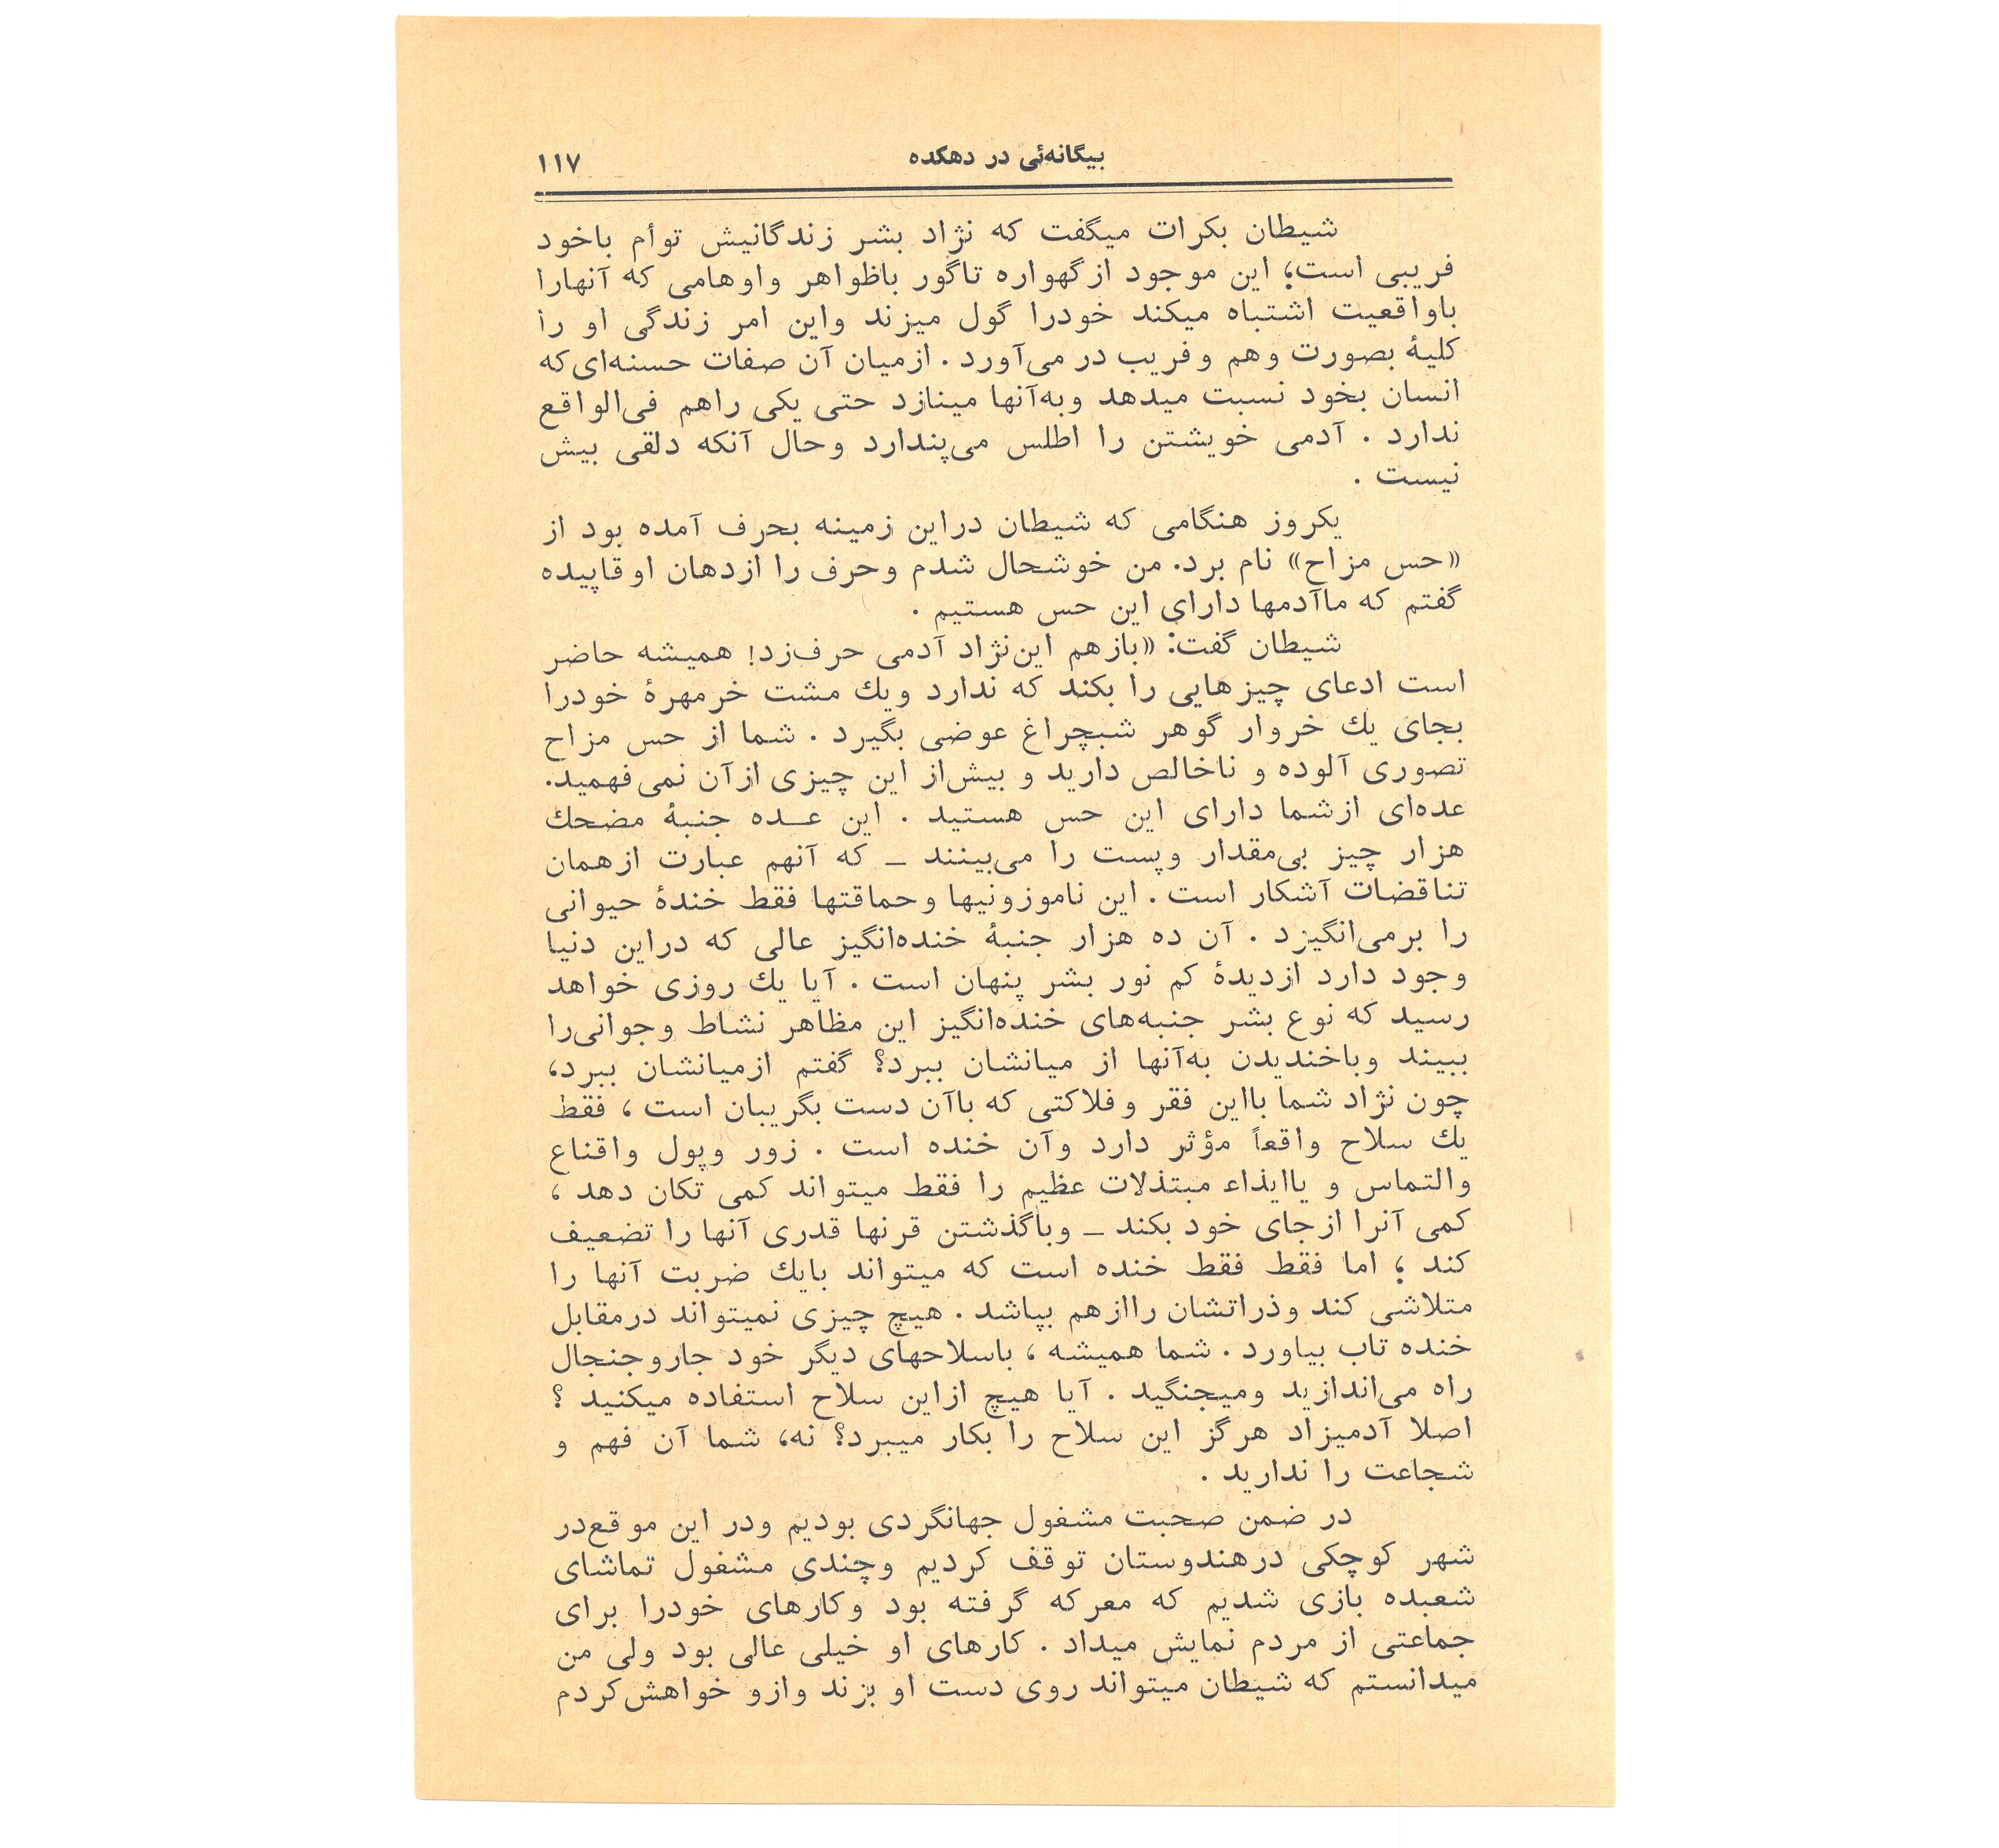 بیگانه‌ئی در دهکده
۱۱۷
شیطان بکرات میگفت که نژاد بشر زندگانیش توأم باخود
فریبی است؛ این موجود ازگهواره تاگور باظواهر واوهامی که آنهارا
باواقعیت اشتباه میکند خودرا گول میزند واین امر زندگی او را
کلیهٔ بصورت وهم وفریب در می‌آورد . ازمیان آن صفات حسنه‌ای‌که
انسان بخود نسبت میدهد وبه‌آنها مینازد حتی یکی راهم فی‌الواقع
ندارد . آدمی خویشتن را اطلس می‌پندارد وحال آنکه دلقی بیش
نیست .
یکروز هنگامی که شیطان دراین زمینه بحرف آمده بود از
«حس مزاح» نام برد. من خوشحال شدم وحرف را ازدهان اوقاپیده
گفتم که ماآدمها دارای این حس هستیم .
شیطان گفت: «بازهم این‌نژاد آدمی حرف‌زد! همیشه حاضر
است ادعای چیزهایی را بکند که ندارد ویك مشت خرمهرهٔ خودرا
بجای یك خروار گوهر شبچراغ عوضی بگیرد . شما از حس مزاح
تصوری آلوده و ناخالص دارید و بیش‌از این چیزی ازآن نمی‌فهمید.
عده‌ای ازشما دارای این حس هستید . این عـده جنبهٔ مضحك
هزار چیز بی‌مقدار وپست را می‌بینند ــ که آنهم عبارت ازهمان
تناقضات آشکار است . این ناموزونیها وحماقتها فقط خندهٔ حیوانی
را برمی‌انگیزد . آن ده هزار جنبهٔ خنده‌انگیز عالی که دراین دنیا
وجود دارد ازدیدهٔ کم نور بشر پنهان است . آیا یك روزی خواهد
رسید که نوع بشر جنبه‌های خنده‌انگیز این مظاهر نشاط وجوانی‌را
ببیند وباخندیدن به‌آنها از میانشان ببرد؟ گفتم ازمیانشان ببرد،
چون نژاد شما بااین فقر وفلاکتی که باآن دست بگریبان است ، فقط
یك سلاح واقعاً مؤثر دارد وآن خنده است . زور وپول واقناع
والتماس و یاایذاء مبتذلات عظیم را فقط میتواند کمی تکان دهد ،
کمی آنرا ازجای خود بکند ــ وباگذشتن قرنها قدری آنها را تضعیف
کند ؛ اما فقط فقط خنده است که میتواند بایك ضربت آنها را
متلاشی کند وذراتشان راازهم بپاشد . هیچ چیزی نمیتواند درمقابل
خنده تاب بیاورد . شما همیشه ، باسلاحهای دیگر خود جاروجنجال
راه می‌اندازید ومیجنگید . آیا هیچ ازاین سلاح استفاده میکنید ؟
اصلا آدمیزاد هرگز این سلاح را بکار میبرد؟ نه، شما آن فهم و
شجاعت را ندارید .
در ضمن صحبت مشغول جهانگردی بودیم ودر این موقع‌در
شهر کوچکی درهندوستان توقف کردیم وچندی مشغول تماشای
شعبده بازی شدیم که معرکه گرفته بود وکارهای خودرا برای
جماعتی از مردم نمایش میداد . کارهای او خیلی عالی بود ولی من
میدانستم که شیطان میتواند روی دست او بزند وازو خواهش‌کردم